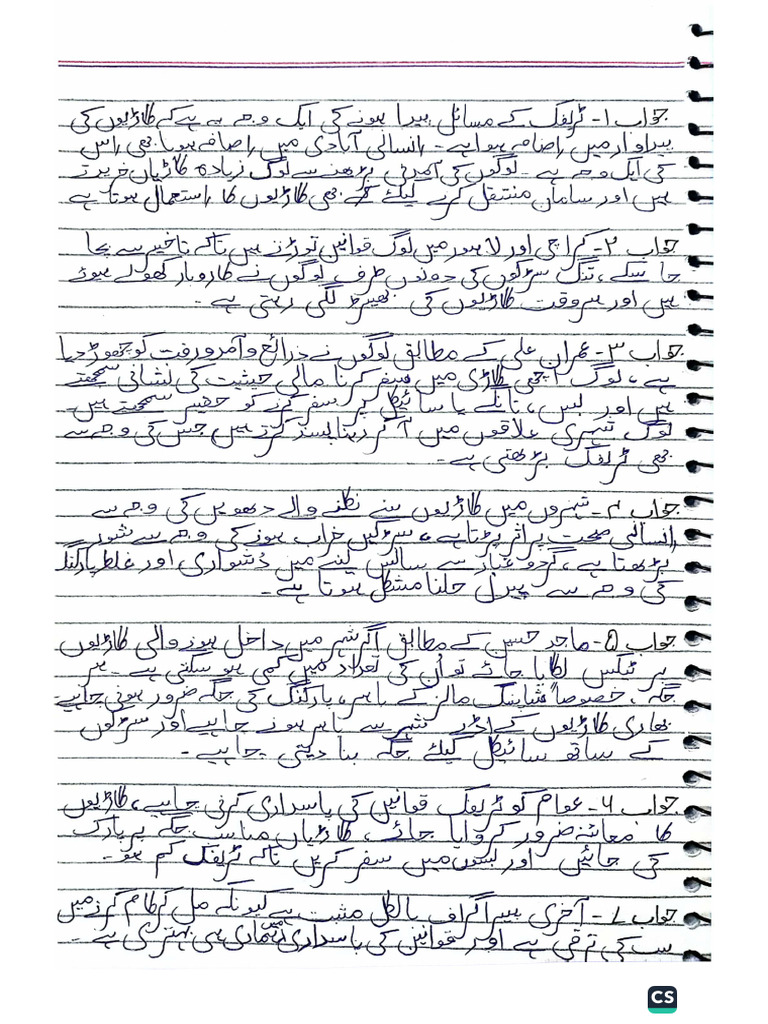 جواب ۱- ٹریفک کے مسائل پیدا ہونے کی ایک وجہ یہ ہے کہ گاڑیوں کی
پیداوار میں اضافہ ہوا ہے۔ انسانی آبادی میں اضافہ ہونا بھی اس
کی ایک وجہ ہے۔ لوگوں کی آمدنی بڑھنے سے لوگ زیادہ گاڑیاں خریدتے
ہیں اور سامان منتقل کرنے کیلئے بھی گاڑیوں کا استعمال ہوتا ہے
جواب ۲- کراچی اور لاہور میں لوگ قوانین توڑتے ہیں تاکہ تاخیر سے بچا
جا سکے، تنگ سڑکوں کی دونوں طرف لوگوں نے کاروبار کھولے ہوئے
ہیں اور ہر وقت گاڑیوں کی بھیڑ لگی رہتی ہے۔
جواب ۳- عمران علی کے مطابق لوگوں نے ذرائع و آمدورفت کو چھوڑ دیا
ہے، لوگ اچھی گاڑی میں سفر کرنا مالی حیثیت کی نشانی سمجھتے
ہیں اور بس، تانگے یا سائیکل پر سفر کرنے کو حقیر سمجھتے ہیں۔
لوگ شہری علاقوں میں آ کر رہنا پسند کرتے ہیں جس کی وجہ سے
بھی ٹریفک بڑھتی ہے۔
جواب ۴- شہروں میں گاڑیوں سے نکلنے والے دھویں کی وجہ سے
انسانی صحت پر اثر پڑتا ہے، سڑکیں خراب ہونے کی وجہ سے شور
بڑھتا ہے، گردوغبار سے سانس لینے میں دُشواری، اور غلط پارکنگ
کی وجہ سے پیدل چلنا مشکل ہوتا ہے۔
جواب ۵- ماجد حسین کے مطابق اگر شہر میں داخل ہونے والی گاڑیوں
پر ٹیکس لگایا جائے تو اُن کی تعداد میں کمی ہو سکتی ہے۔ ہر
جگہ، خصوصاً شاپنگ مالز کے باہر، پارکنگ کی جگہ ضرور ہونی چاہیے۔
بھاری گاڑیوں کے اڈے شہر سے باہر ہونے چاہیے اور سڑکوں
کے ساتھ سائیکل کیلئے جگہ بنا دیتی چاہیے۔
جواب ۶- عوام کو ٹریفک قوانین کی پاسداری کرنی چاہیے، گاڑیوں
کا معائنہ ضرور کروایا جائے، گاڑیاں مناسب جگہ پر پارک
کی جائیں اور بسوں میں سفر کریں تاکہ ٹریفک کم ہو۔
جواب ۷- آخری پیراگراف بالکل مثبت ہے کیونکہ مل کر کام کرنے میں
سب کی ترقی ہے اور قوانین کی پاسداری میں ہماری ہی بہتری ہے۔
CS